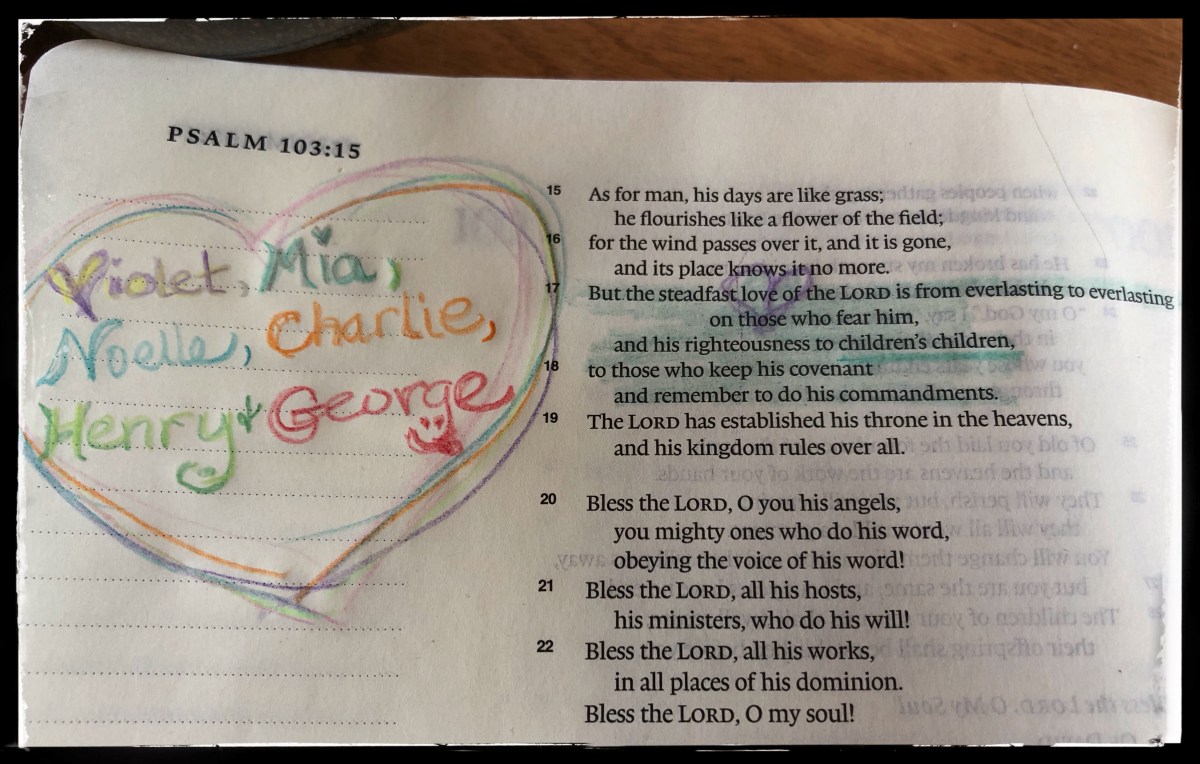 PSALM 103:15
Violet, Mia,
Noelle, Charlie,
Henry & George
15 As for man, his days are like grass;
he flourishes like a flower of the field;
16 for the wind passes over it, and it is gone,
and its place knows it no more.
17 But the steadfast love of the LORD is from everlasting to everlasting
on those who fear him,
and his righteousness to children's children,
18 to those who keep his covenant
and remember to do his commandments.
19 The LORD has established his throne in the heavens,
and his kingdom rules over all.
20 Bless the LORD, O you his angels,
you mighty ones who do his word,
obeying the voice of his word!
21 Bless the LORD, all his hosts,
his ministers, who do his will!
22 Bless the LORD, all his works,
in all places of his dominion.
Bless the LORD, O my soul!